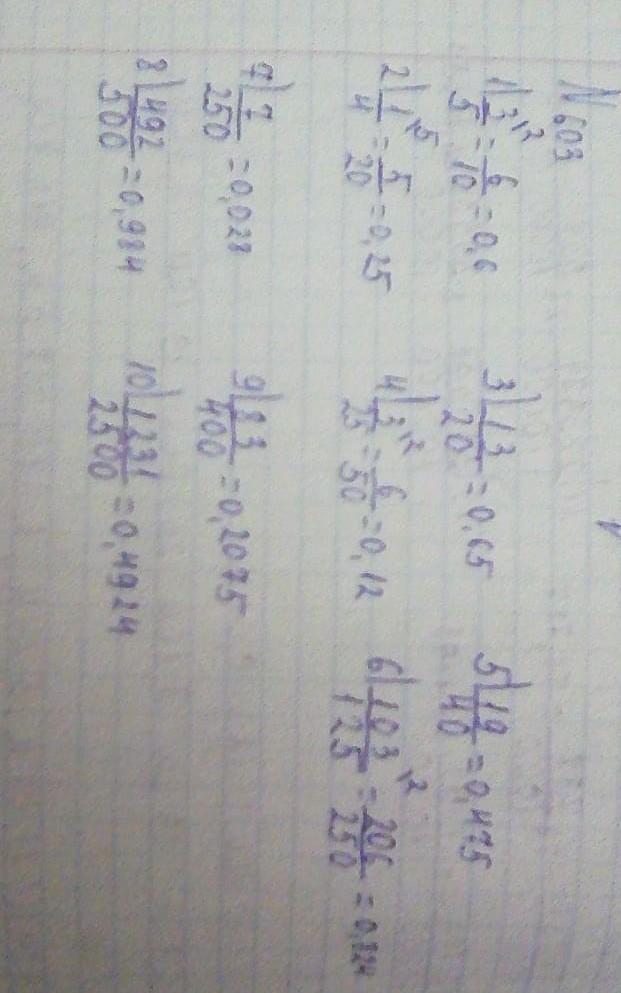 N 603
1) 3/5 ·2 = 6/10 = 0,6
3) 13/20 = 0,65
5) 19/40 = 0,475
2) 1/4 ·5 = 5/20 = 0,25
4) 3/25 ·2 = 6/50 = 0,12
6) 103/125 ·2 = 206/250 = 0,824
7) 7/250 = 0,028
9) 83/400 = 0,2075
8) 492/500 = 0,984
10) 1231/2500 = 0,4924